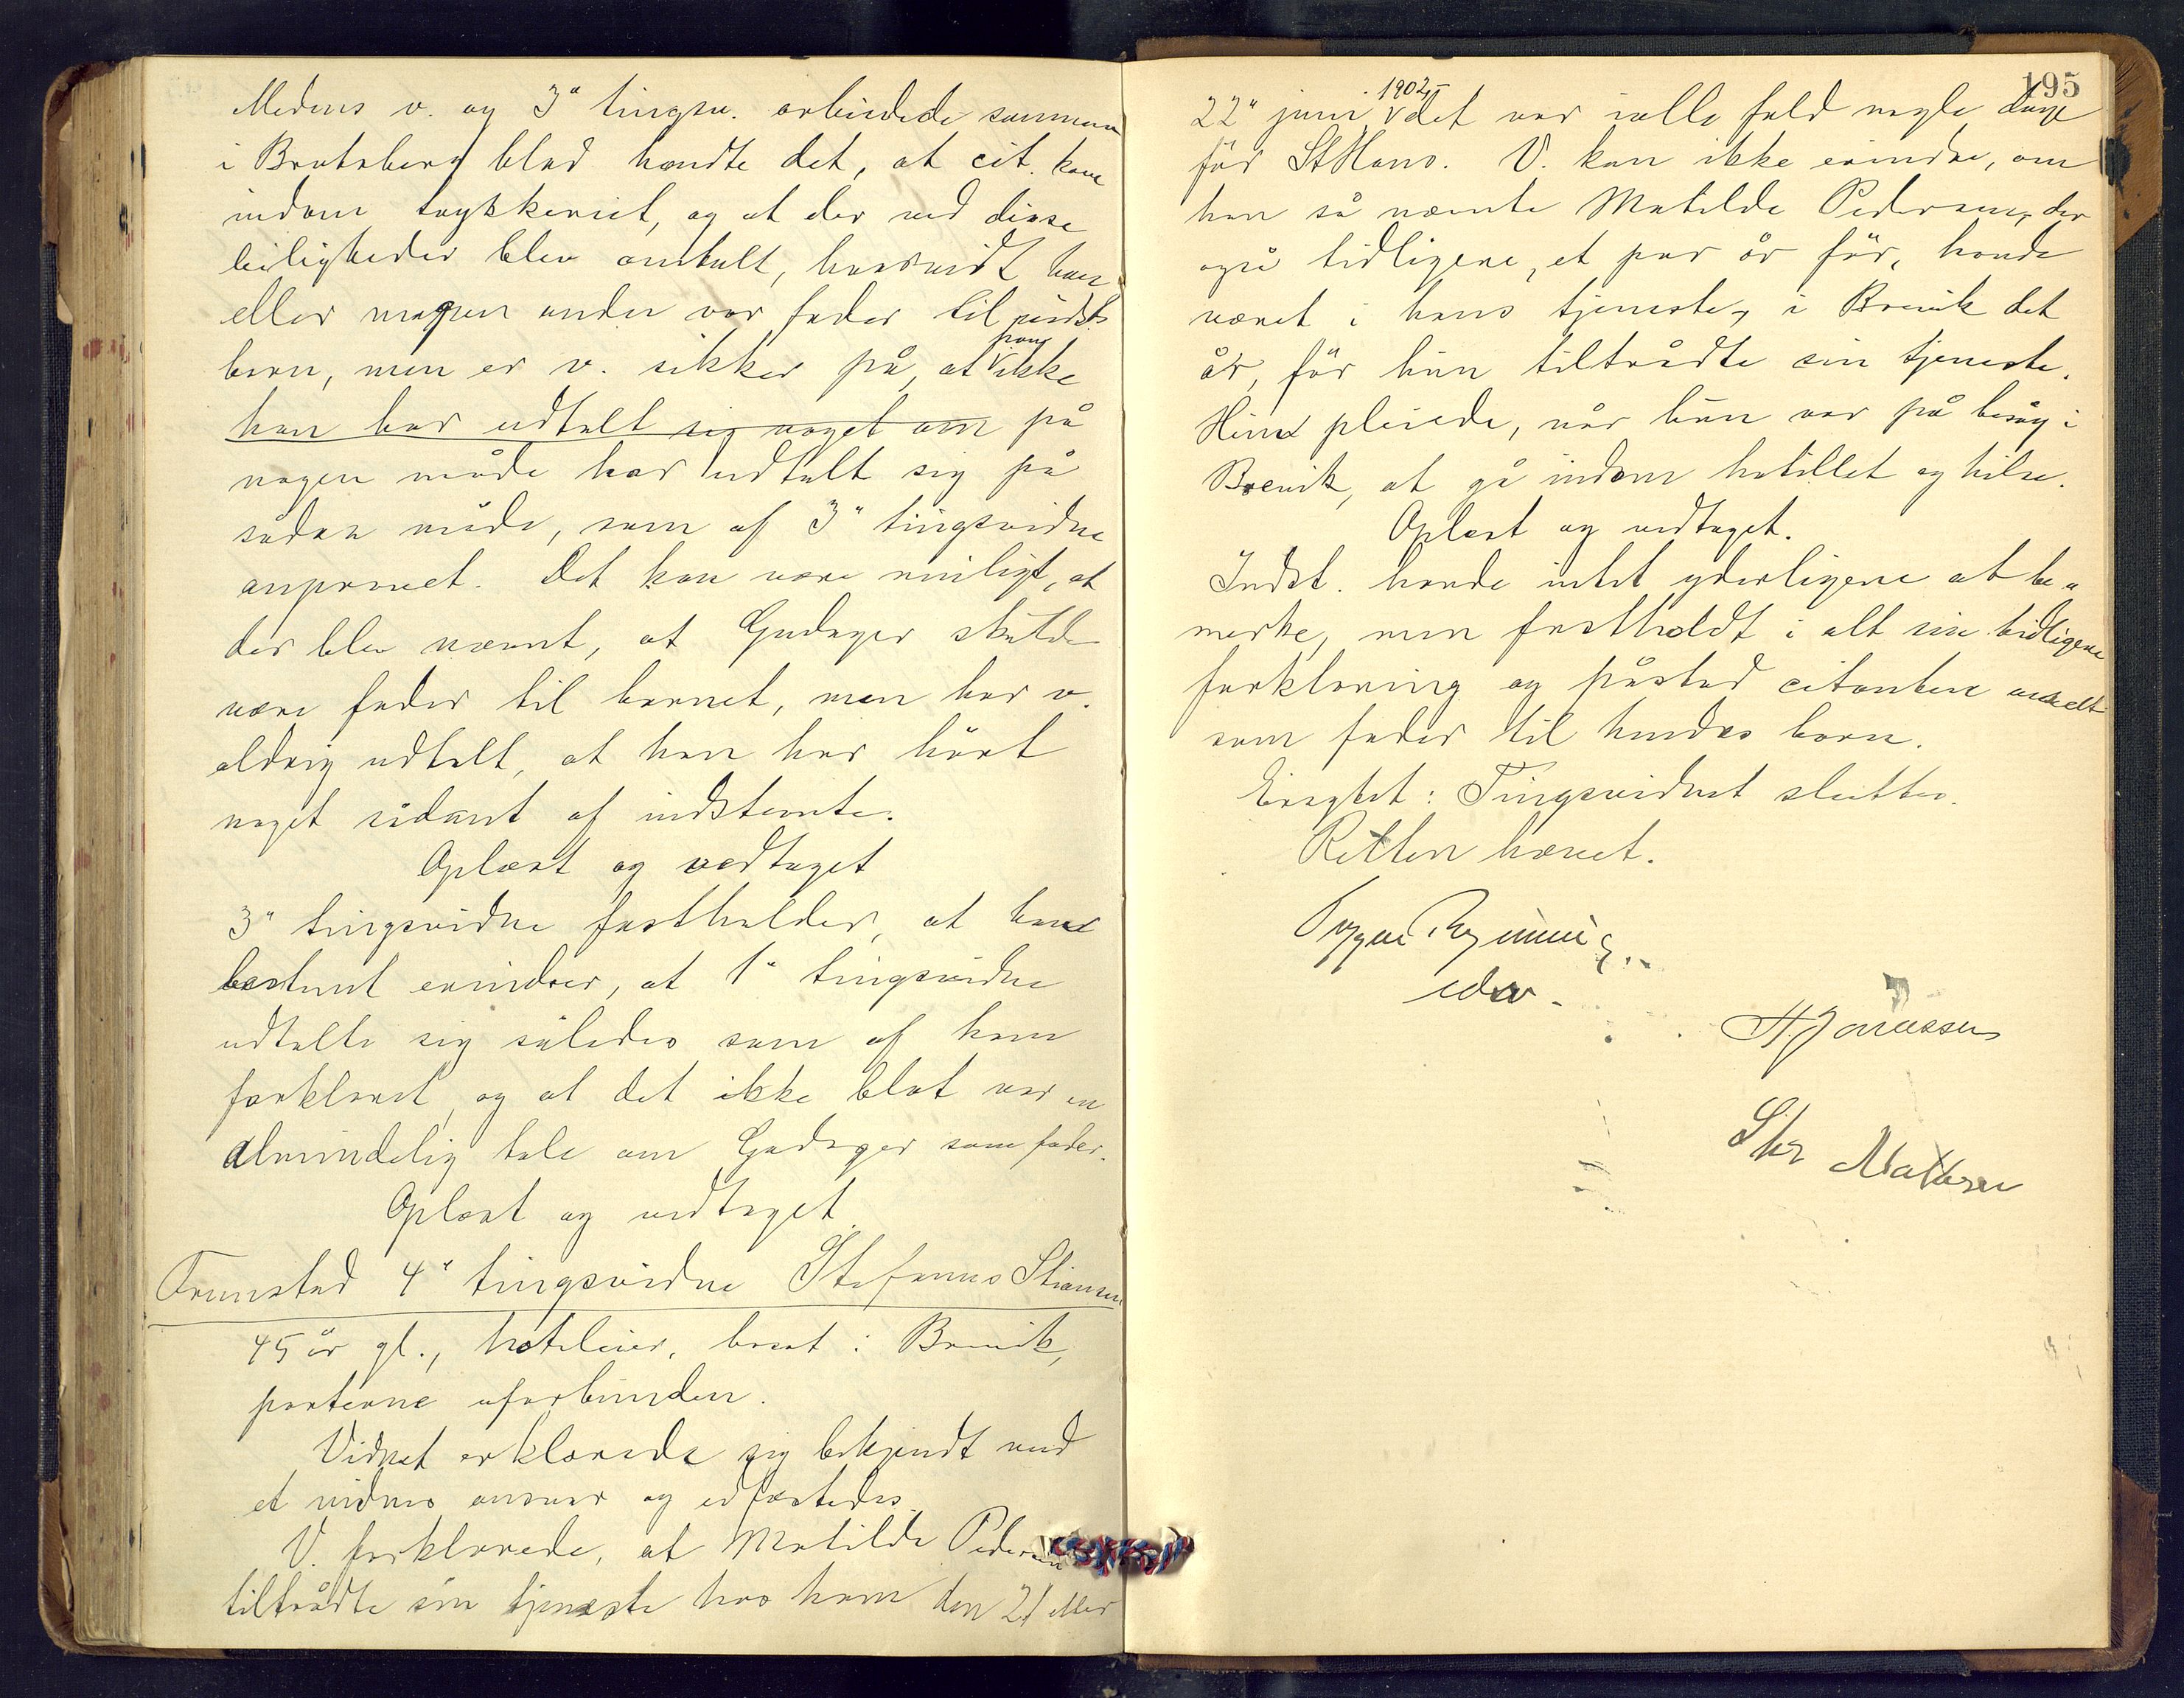 Medens v. og 3" tingsv. arbeidede sammen
i Bratsberg blad hændte det, at cit. kom
indom trykkeriet, og at der ved disse
leiligheder blev omtalt, hvorvidt han
eller nogen anden var fader til indst.s
barn, men er v. sikker på, at han ikke
han har udtalt sig noget om på
nogen måde har udtalt sig på
sådan måde, som af 3" tingsvidne
anprovet. Det kan være muligt, at
der blev nævnt, at Gudager skulde
være fader til barnet, men har v.
aldrig udtalt, at han har hört
noget sådant af indstevnte.
Oplæst og vedtaget
3" tingsvidne fastholder, at han
bestemt erindrer, at 1" tingsvidne
udtalte sig således som af ham
forklaret, og at det ikke blot var en
almindelig tale om Gudager som fader.
Oplæst og vedtaget.
Fremstod 4" tingsvidne Stefanus Stiansen
45 år gl., hoteleier, bosat i Brevik,
parterne uforbunden.
Vidnet erklærede sig bekjendt med
et vidnes ansvar og edfæstedes.
V. forklarede, at Matilde Pedersen
tiltrådte sin tjeneste hos ham den 21 eller
195
22" juni 1902, det var ialle fald nogle dage
för StHans. V. kan ikke erindre, om
han så nævnte Matilde Pedersen, der
også tidligere, et par år för, havde
været i hans tjeneste, i Brevik det
år, för hun tiltrådte sin tjeneste.
Hun pleiede, når hun var på besög i
Brevik, at gå indom hotellet og hilse.
Oplæst og vedtaget.
Indst. havde intet yderligere at be-
merke, men fastholdt i alt sin tidligere
forklaring og påstod citanten anseet
som fader til hendes barn.
Eragtet: Tingsvidnet sluttes.
Retten hævet.
edsv.
H. Jonassen
Chr Madsen